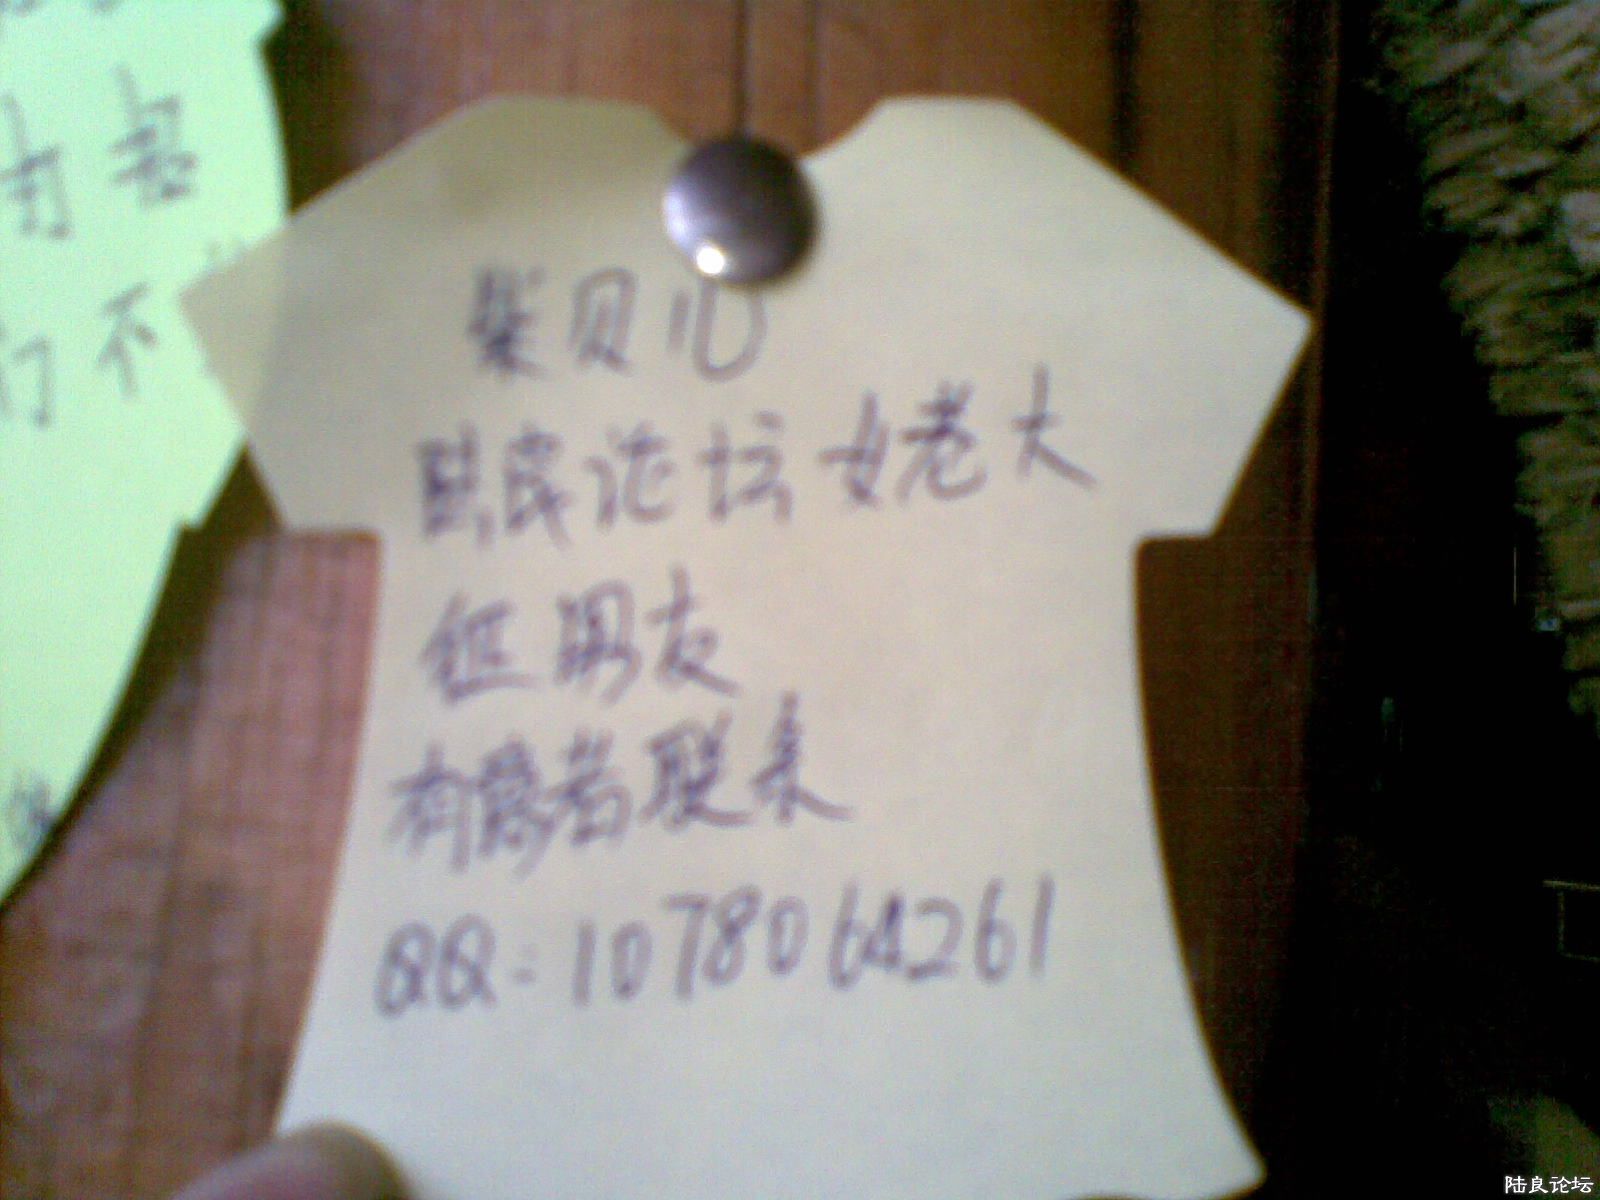 有
们不
紫贝儿
陆良论坛女老大
征男友
有意者联系
QQ:1078064261
陆良论坛